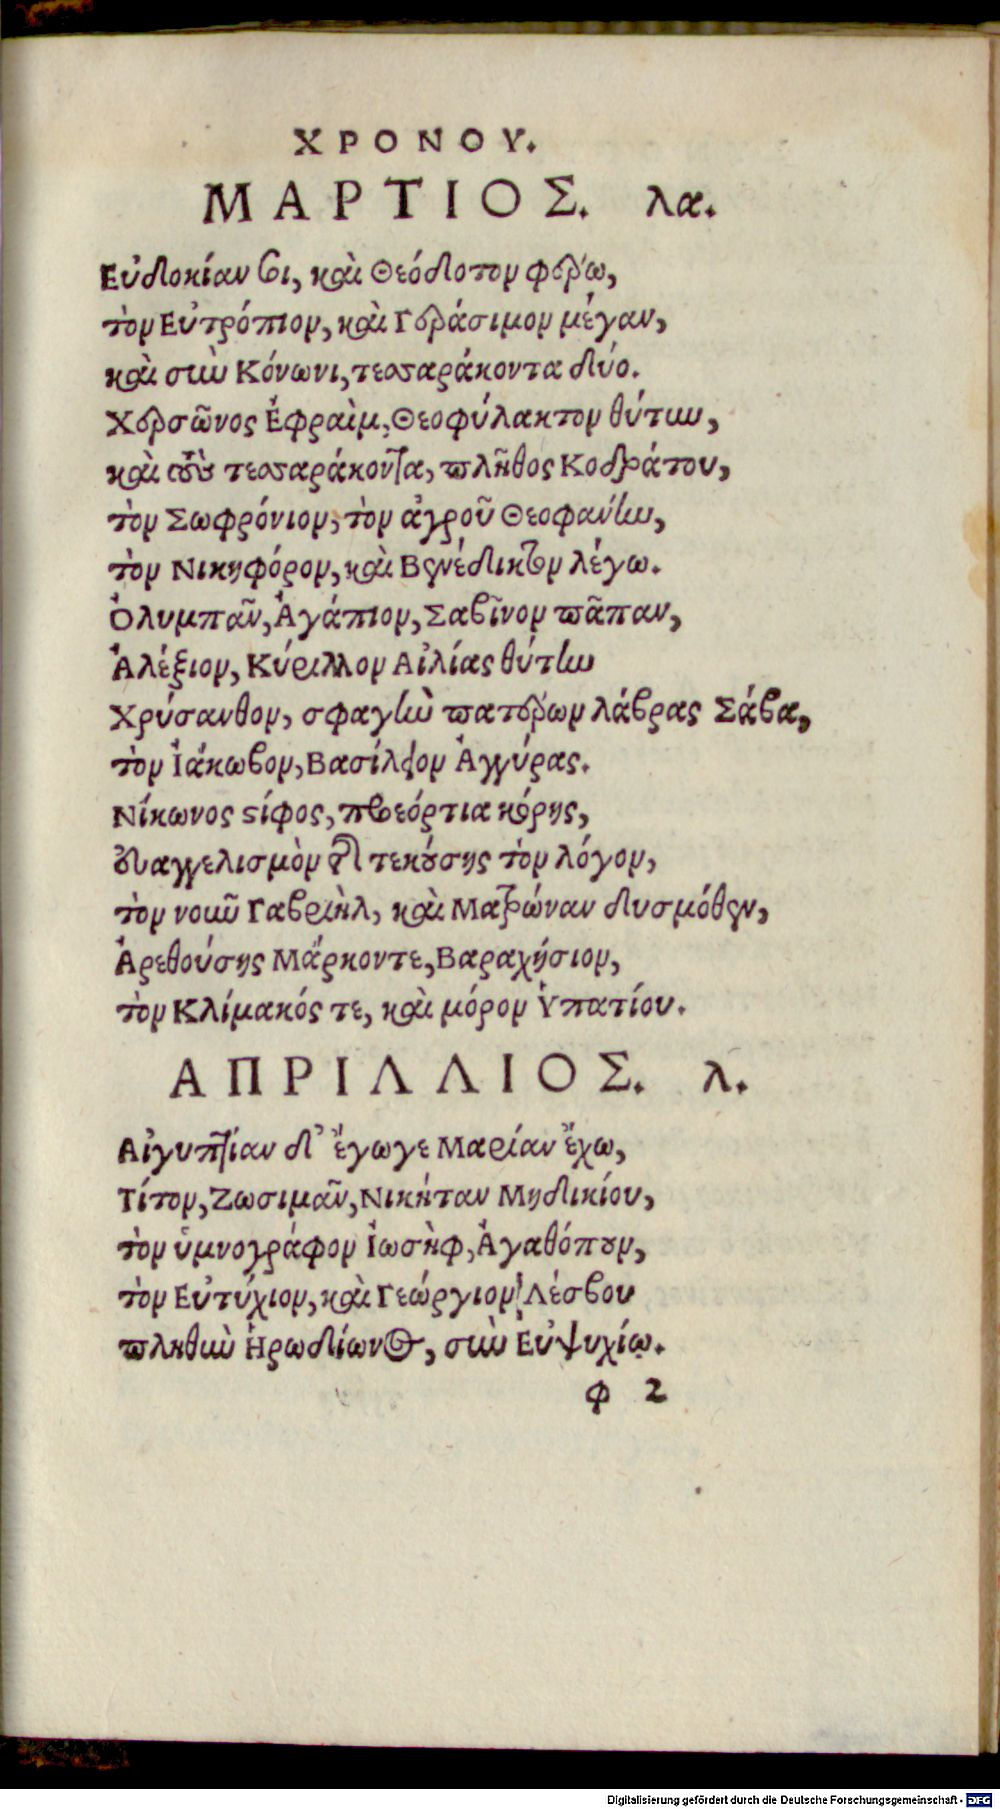 ΧΡΟΝΟΥ.
ΜΑΡΤΙΟΣ. λα.
Εὐδοκίαν σοι, καὶ Θεόδοτον φέρω,
τὸν Εὐτρόπιον, καὶ Γεράσιμον μέγαν,
καὶ σὺν Κόνωνι, τεσσαράκοντα δύο.
Χερσῶνος Ἐφραὶμ, Θεοφύλακτον θύτην,
καὶ τοὺς τεσσαράκοντα, πλῆθος Κοδράτου,
τὸν Σωφρόνιον, τὸν ἀγροῦ Θεοφάνην,
τὸν Νικηφόρον, καὶ Βενέδικτον λέγω.
Ὀλυμπᾶν, Ἀγάπιον, Σαβῖνον πᾶπαν,
Ἀλέξιον, Κύριλλον Αἰλίας θύτην
Χρύσανθον, σφαγὴν πατέρων λάβρας Σάβα,
τὸν Ἰάκωβον, Βασίλειον Ἀγγύρας.
Νίκωνος στίφος, προεόρτια κόρης,
εὐαγγελισμὸν τῆς τεκούσης τὸν λόγον,
τὸν νοῦν Γαβριὴλ, καὶ Ματρώναν δυσμόθεν,
Ἀρεθούσης Μάρκοντε, Βαραχήσιον,
τὸν Κλίμακός τε, καὶ μόρον Ὑπατίου.
ΑΠΡΙΛΛΙΟΣ. λ.
Αἰγυπτίαν δ' ἔγωγε Μαρίαν ἔχω,
Τίτον, Ζωσιμᾶν, Νικήταν Μηδικίου,
τὸν ὑμνογράφον Ἰωσὴφ, Ἀγαθόπουν,
τὸν Εὐτύχιον, καὶ Γεώργιον Λέσβου
πληθὺν Ἡρωδίωνος, σὺν Εὐψυχίῳ.
φ 2
Digitalisierung gefördert durch die Deutsche Forschungsgemeinschaft - DFG